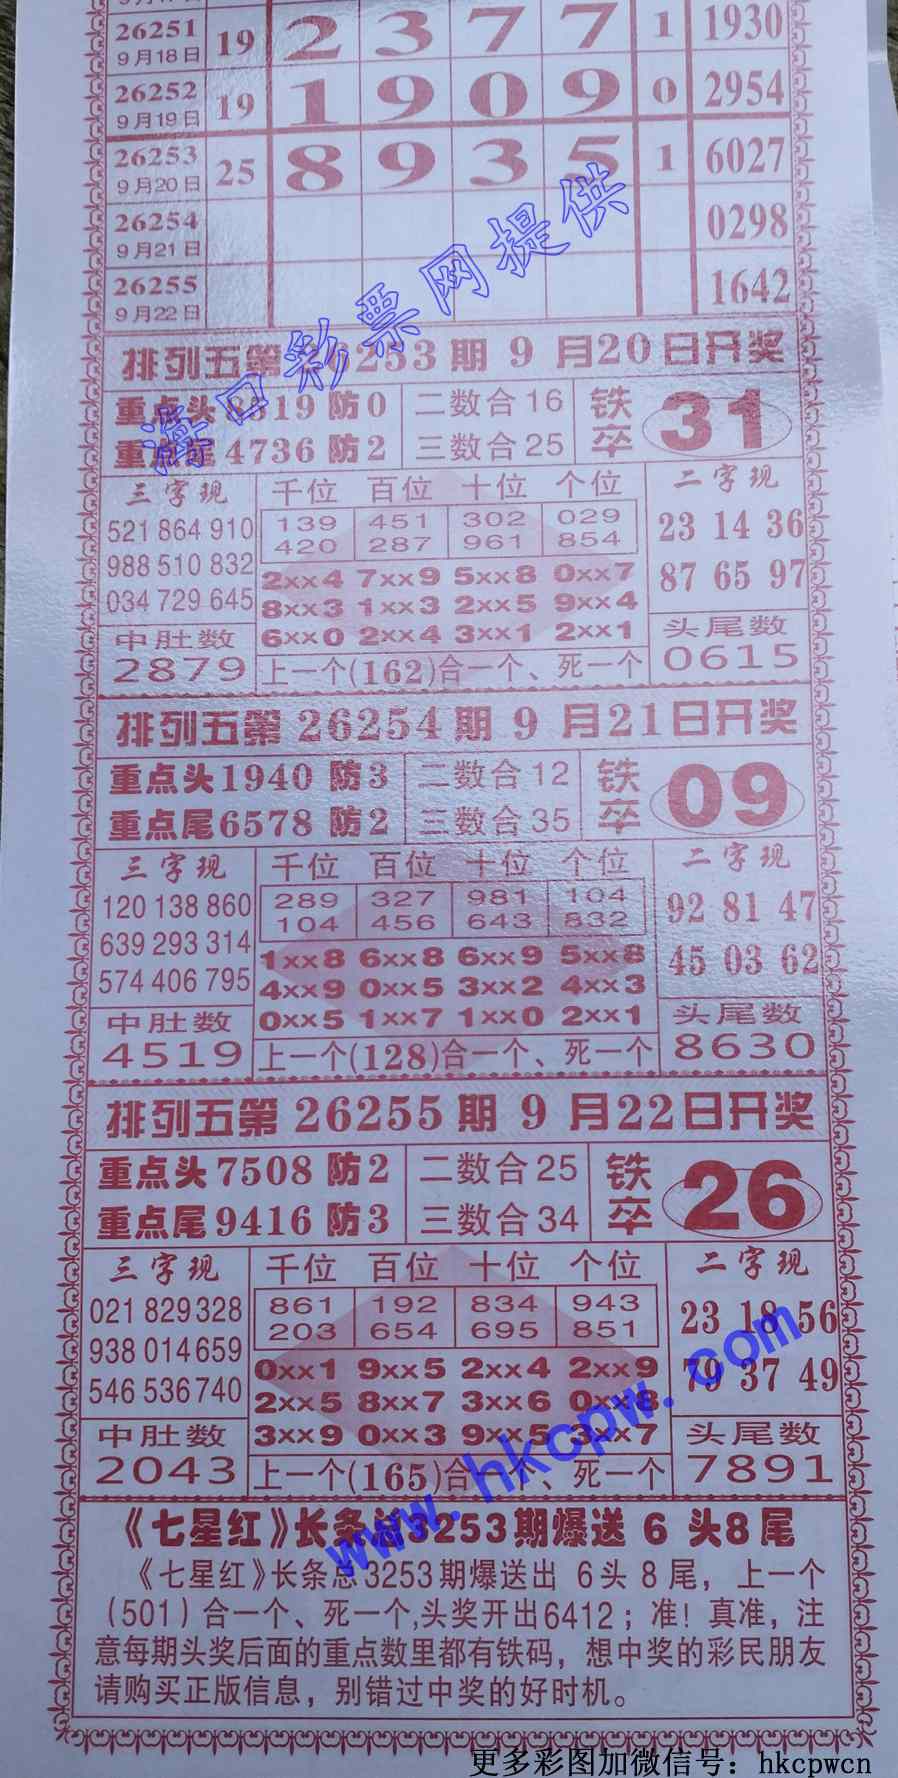 26251
9月18日 19 2 3 7 7 1 1930
26252
9月19日 19 1 9 0 9 0 2954
26253
9月20日 25 8 9 3 5 1 6027
26254
9月21日 0298
26255
9月22日 1642
海口彩票网提供
排列五第26253期 9月20日开奖
重点头8519 防0 二数合16 铁卒 31
重点尾4736 防2 三数合25
三字现 千位 百位 十位 个位 二字现
521 864 910 139 451 302 029 23 14 36
988 510 832 420 287 961 854 87 65 97
034 729 645 2××4 7××9 5××8 0××7
8××3 1××3 2××5 9××4
中肚数 6××0 2××4 3××1 2××1 头尾数
2879 上一个(162)合一个、死一个 0615
排列五第26254期 9月21日开奖
重点头1940 防3 二数合12 铁卒 09
重点尾6578 防2 三数合35
三字现 千位 百位 十位 个位 二字现
120 138 860 289 327 981 104 92 81 47
639 293 314 104 456 643 832 45 03 62
574 406 795 1××8 6××8 6××9 5××8
4××9 0××5 3××2 4××3
中肚数 0××5 1××7 1××0 2××1 头尾数
4519 上一个(128)合一个、死一个 8630
排列五第26255期 9月22日开奖
重点头7508 防2 二数合25 铁卒 26
重点尾9416 防3 三数合34
三字现 千位 百位 十位 个位 二字现
021 829 328 861 192 834 943 23 18 56
938 014 659 203 654 695 851 79 37 49
546 536 740 0××1 9××5 2××4 2××9
2××5 8××7 3××6 0××8
中肚数 3××9 0××3 9××5 3××7 头尾数
2043 上一个(165)合一个、死一个 7891
www.hkcpw.com
《七星红》长条总3253期爆送 6 头8尾
《七星红》长条总3253期爆送出 6头8尾，上一个
（501）合一个、死一个,头奖开出6412；准！真准，注
意每期头奖后面的重点数里都有铁码，想中奖的彩民朋友
请购买正版信息，别错过中奖的好时机。
更多彩图加微信号：hkcpwcn